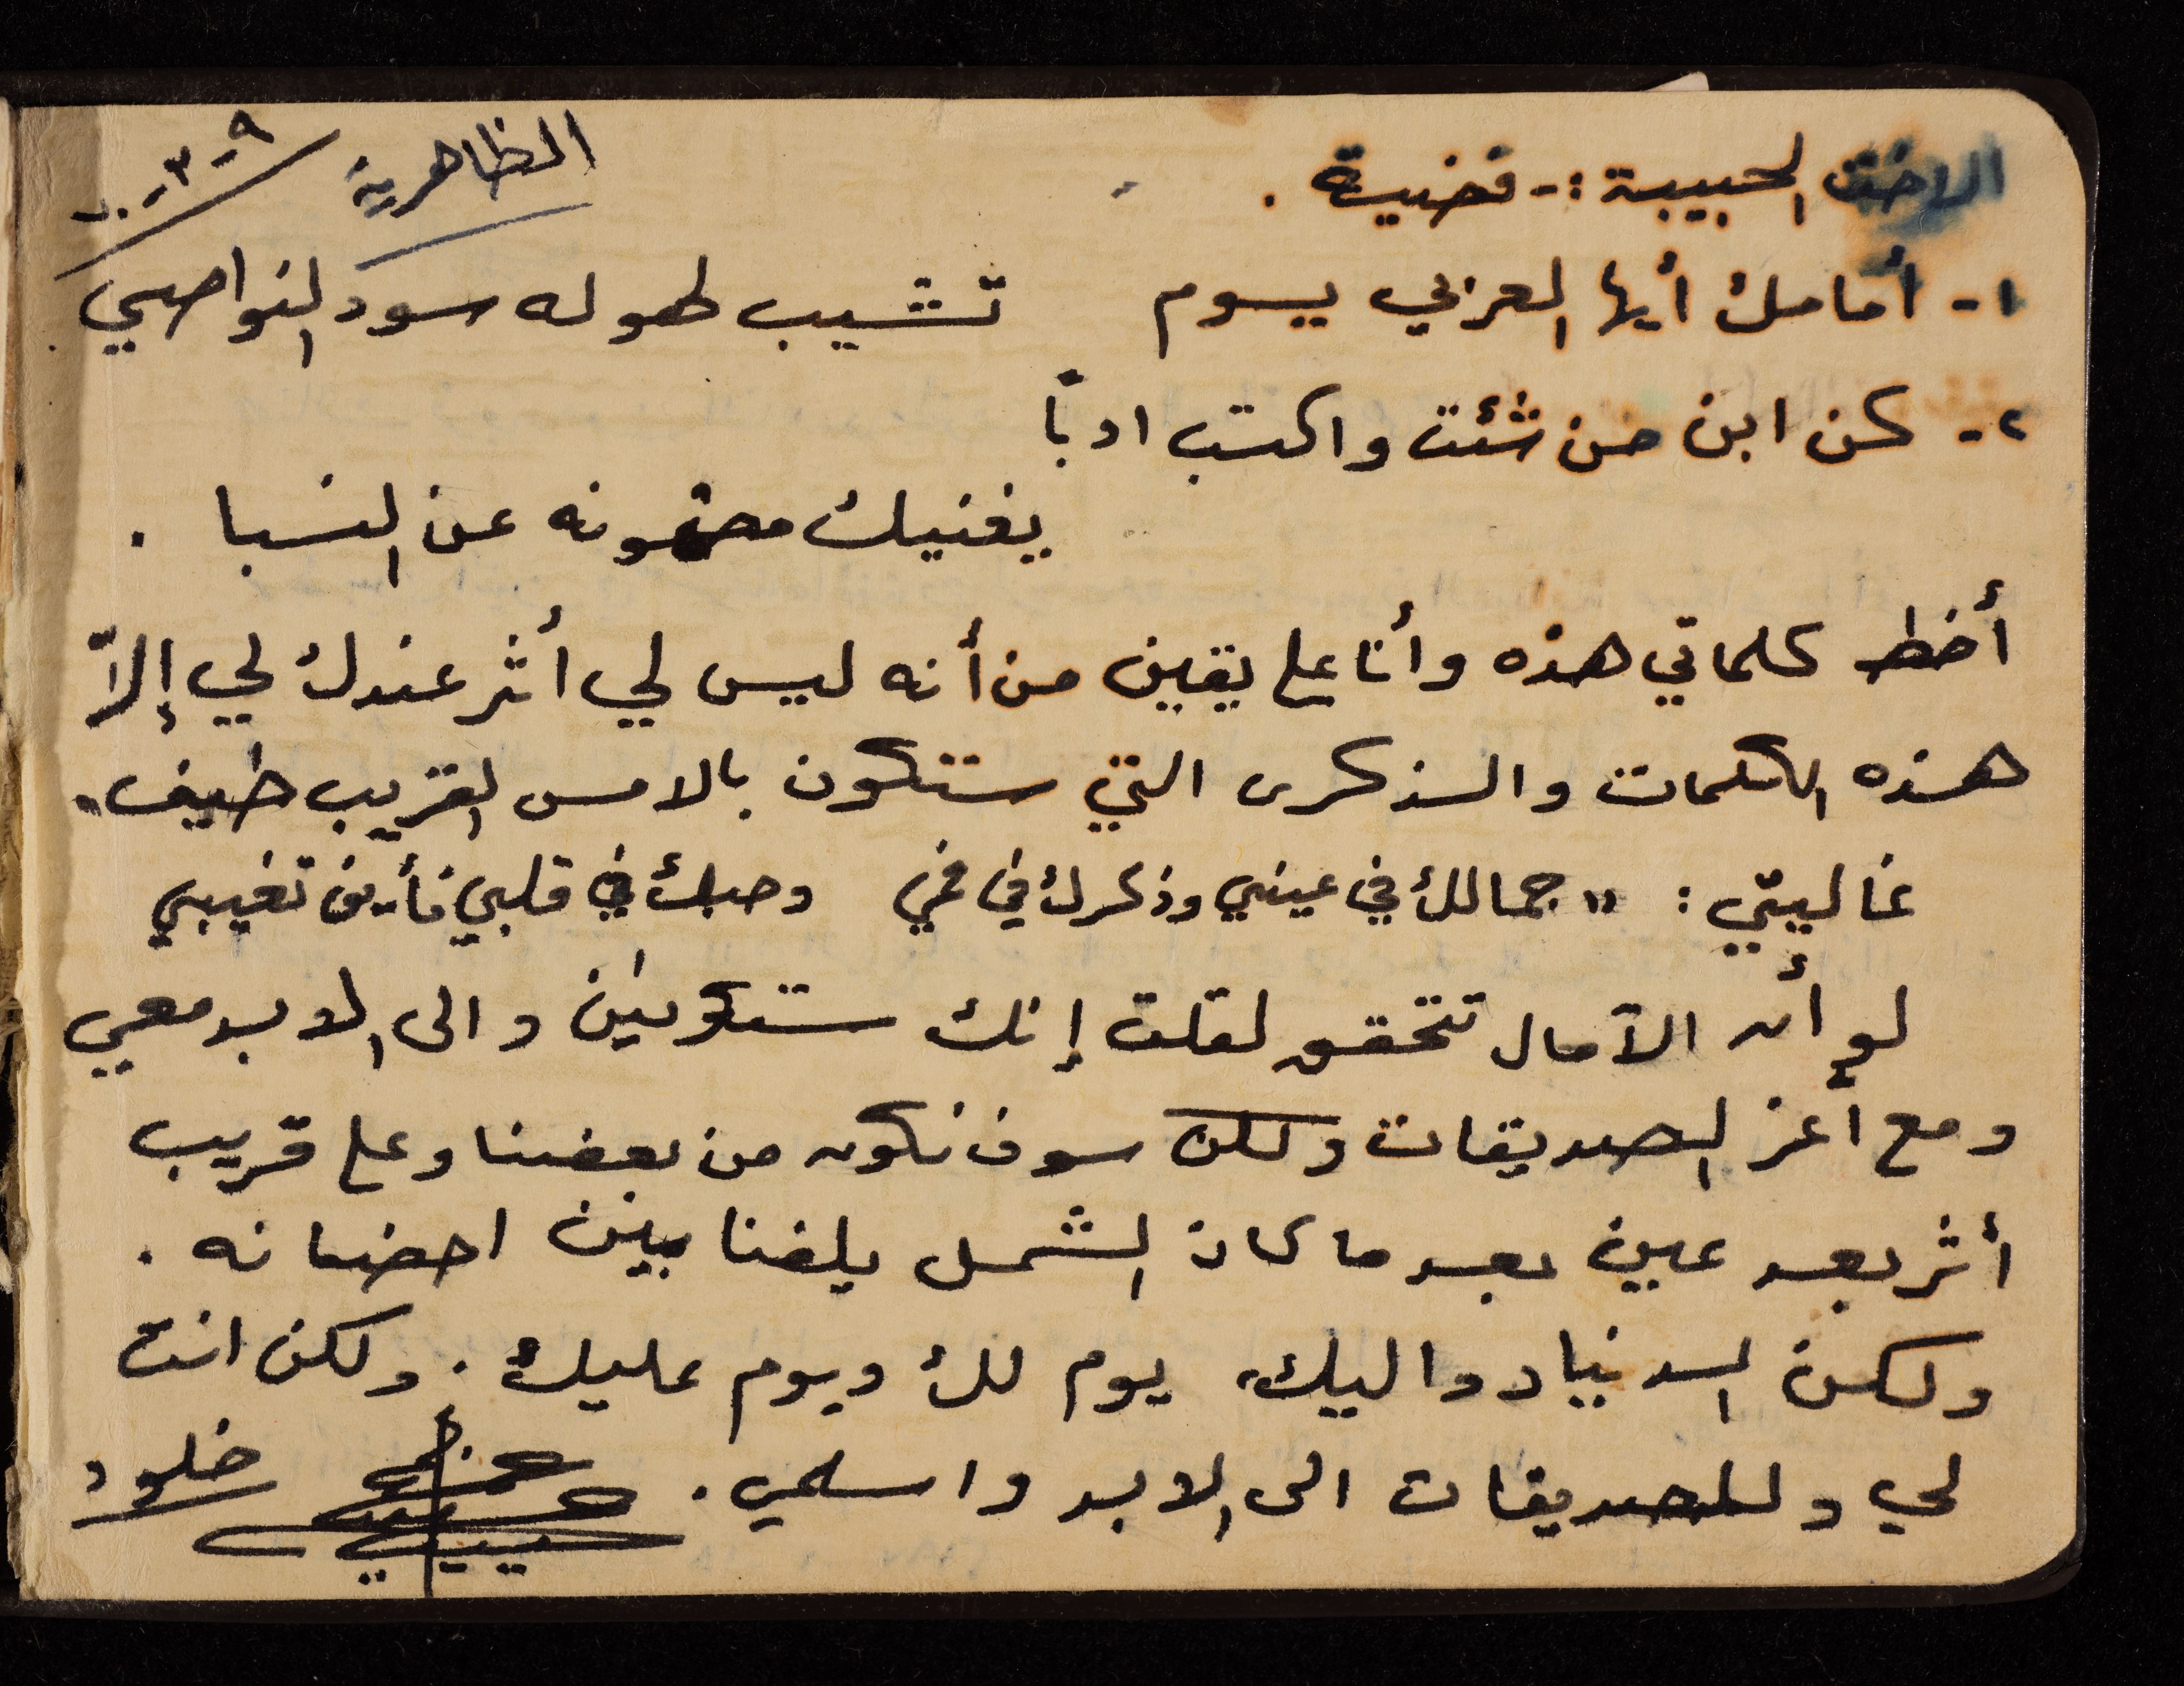 الاخت الحبيبة :- قضية .
الظاهرية
١- أمامك أيها العربي يوم    تشيب لهوله سود النواصي
٢- كن ابن من شئت واكتسب ادباً
يغنيك مضمونه عن النسبا .
أخط كلماتي هذه وأنا على يقين من أنه ليس لي أثر عندك لي إلاّ
هذه الكلمات والذكرى التي ستكون بالامس القريب طيف .
غاليتي : " جمالك في عيني وذكرك في فمي    وحبك في قلبي فأين تغيبي
لو أن الآمال تتحقق لقلت إنك ستكونين والى الابد معي
ومع أعز الصديقات ولكن سوف نكون من بعضنا وعلى قريب
أثر بعد عين بعد ما كان الشمل يلفنا بين احضانه .
ولكن الدنيا دواليك، يوم لك ويوم عليك . ولكن انت
لي وللصديقات الى الابد واسلمي .
خلود